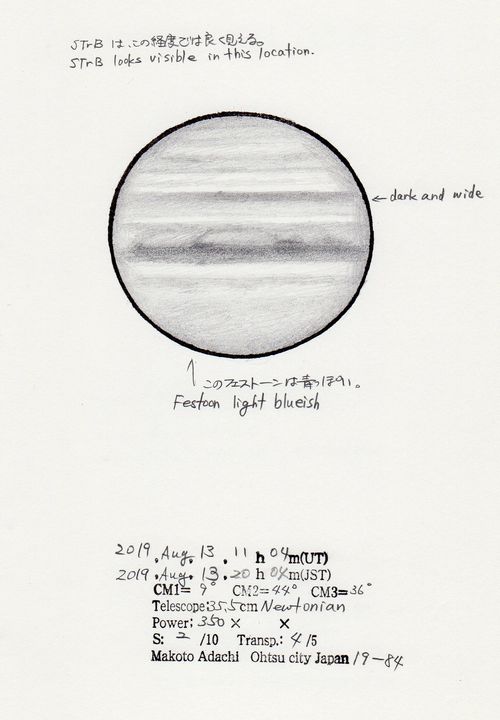 STrB は、この経度では良く見える。
STrB looks visible in this location.
← dark and wide
↑ このフェストーンは青っぽい。
Festoon light blueish
2019.Aug.13.11h04m(UT)
2019.Aug.13.20h04m(JST)
CM1= 9° CM2=44° CM3=36°
Telescope:35.5cm Newtonian
Power: 350× ×
S: 2 /10 Transp.: 4/5
Makoto Adachi Ohtsu city Japan 19-84